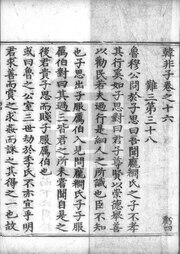 韓非子卷之十六
難三第三十八
魯穆公問於子思曰吾聞龐氏之子不孝
其行奚如子思對曰君子尊賢以崇德舉善
以勸民若夫過行是細人之所識也臣不知
也子思出子服厲伯入見問龐氏子子服
厲伯對曰其過三皆君之所未嘗聞自是之
後君貴子思而賤子服厲伯也
或曰魯之公室三世劫於季氏不亦宜乎明
君求善而賞之求姦而誅之其得之一也故